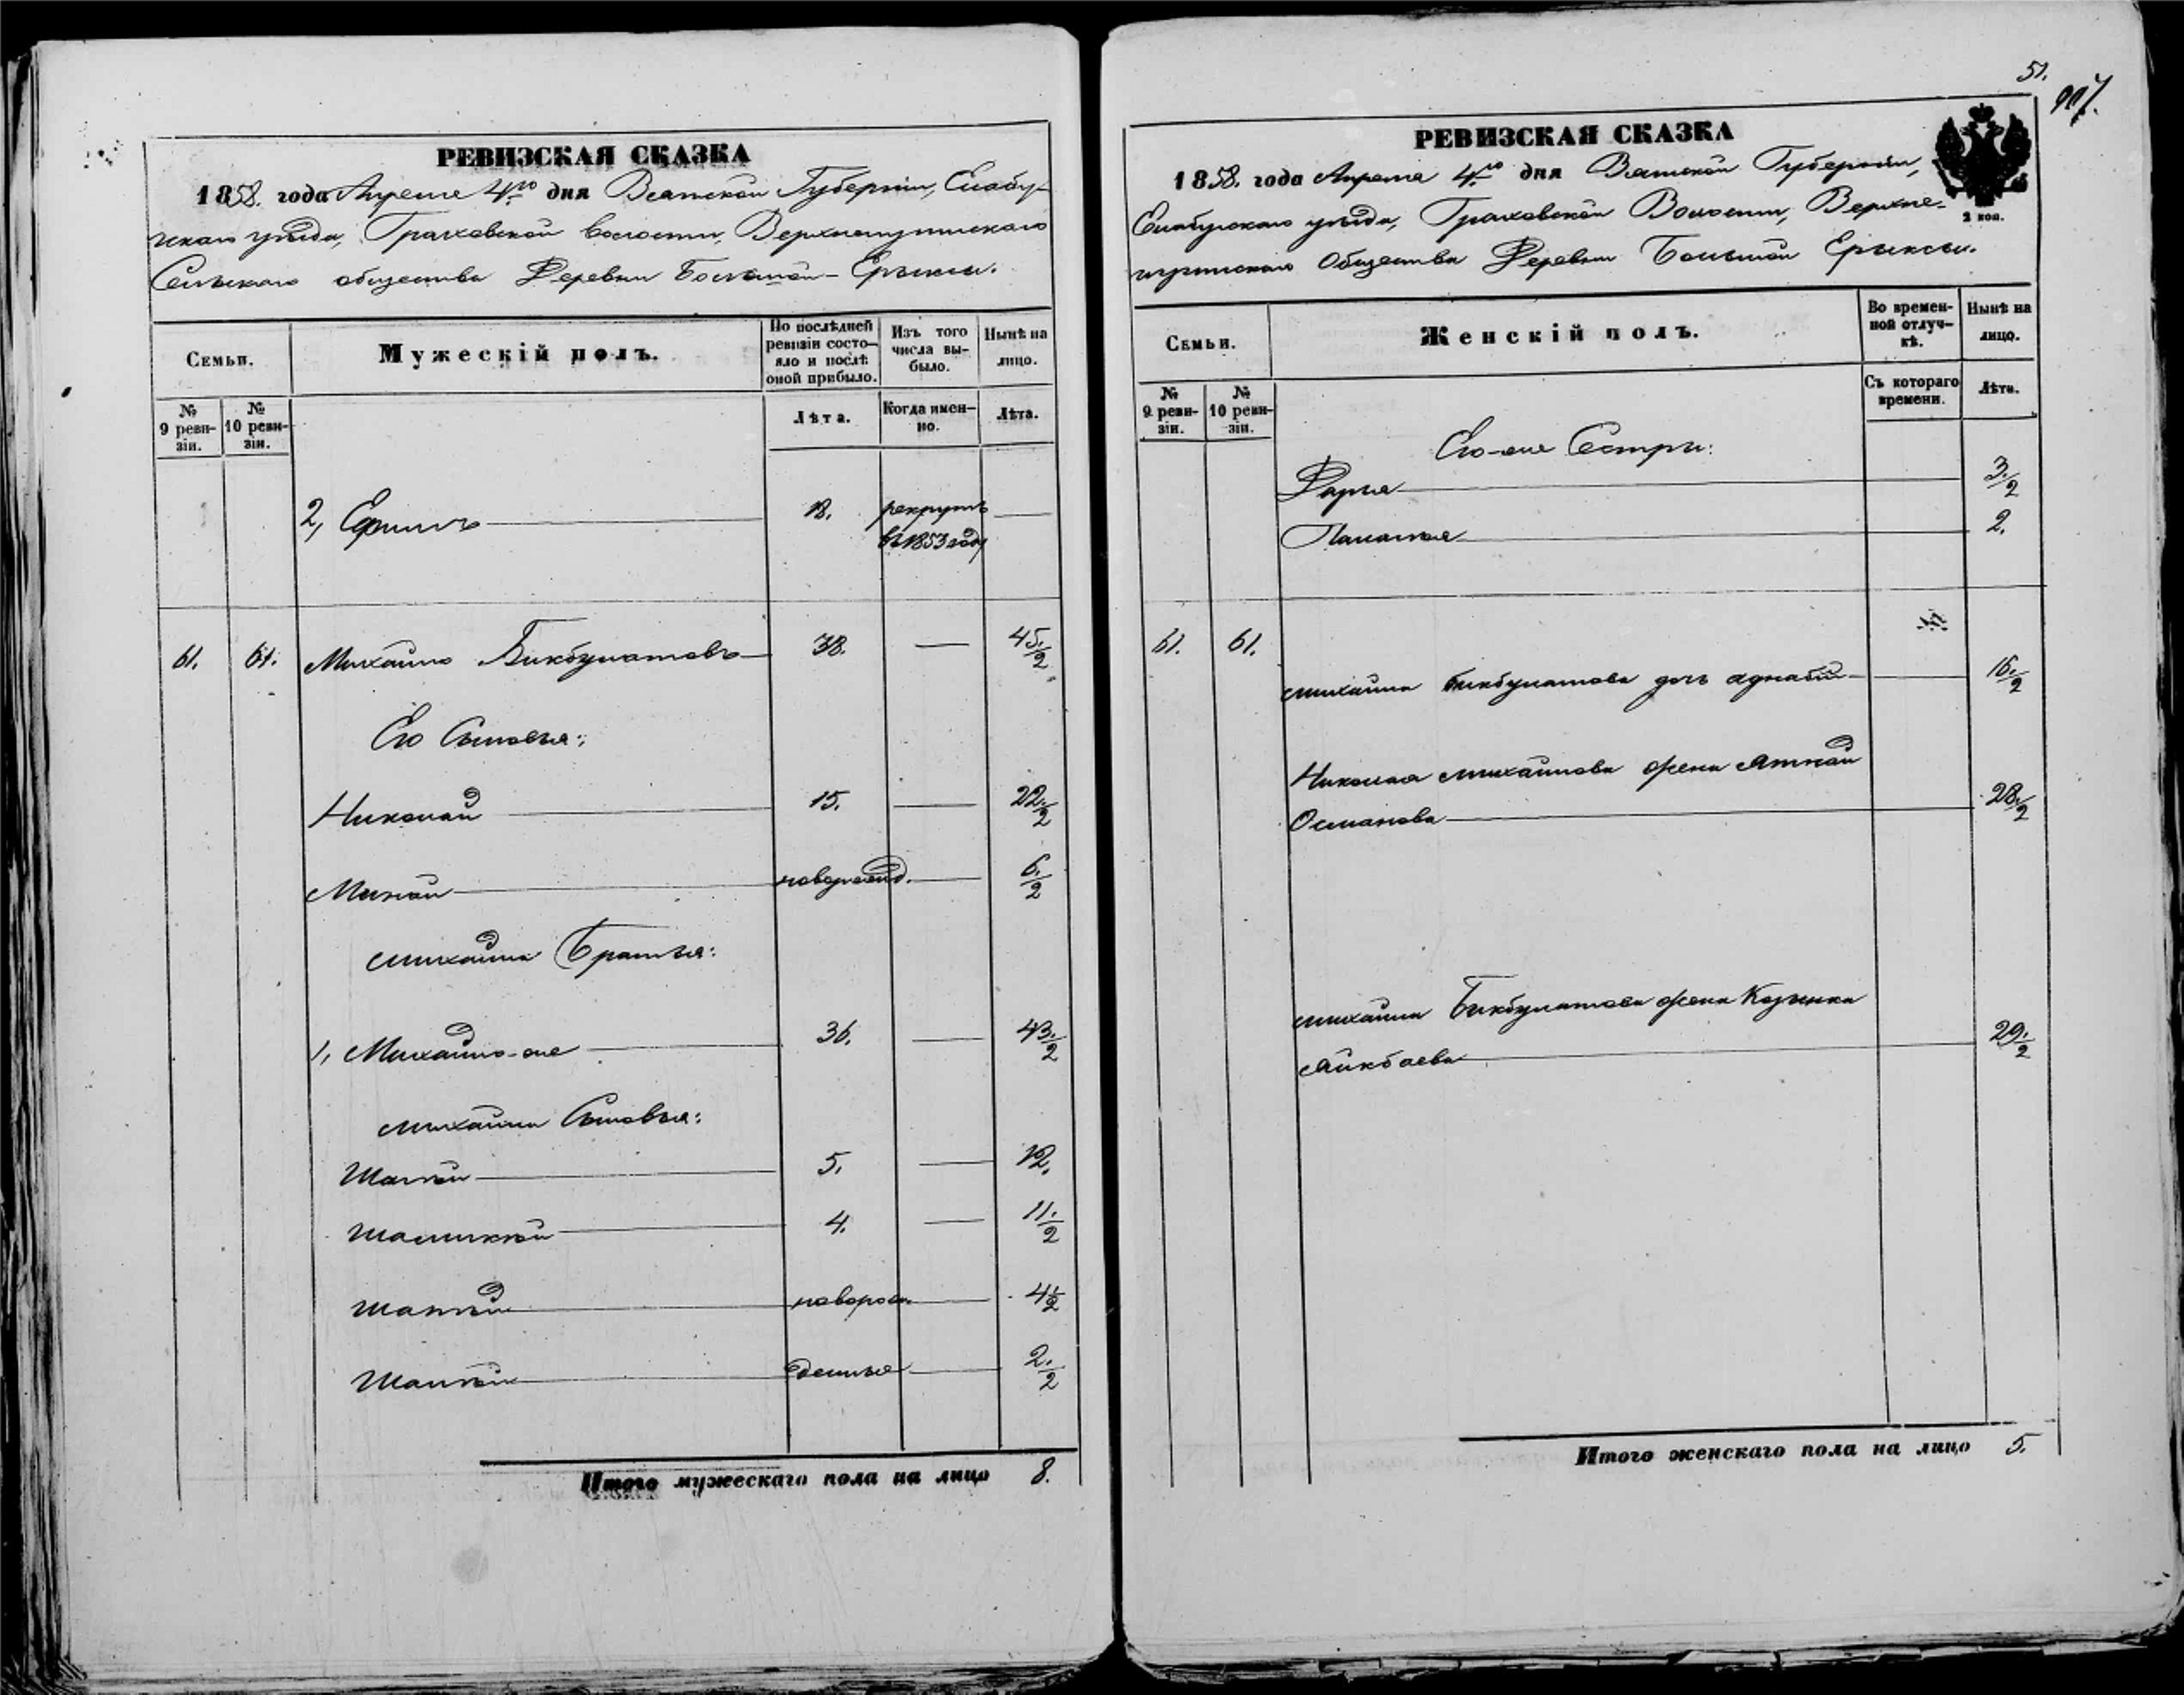 РЕВИЗСКАЯ СКАЗКА
1858. года Апреля 4го дня Вятской Губернiи, Елабу-
гскаго уѣзда, Граховской волости,
Сельскаго общества Деревни Большой-Ерыксы.
Семьи.
Мужескiй полъ.
По послѣдней
ревизiи состо-
яло и послѣ
оной прибыло.
Изъ того
числа вы-
было.
Нынѣ на
лицо.
№
9 реви-
зiи.
№
10 реви-
зiи.
Лѣта.
Когда имен-
но.
Лѣта.
2, Ефимъ 18. рекрутъ
въ 1853 году
61. 61. Михайло Бикбулатовъ 38. 45 1/2
Его Сыновья:
Николай 15. 22 1/2
Минай новорожд. 6 1/2
Михайла Братья:
1, Михайло-же 36. 43 1/2
Михайла Сыновья:
5. 12.
4. 11 1/2
новорож. 4 1/2
2 1/2
Итого мужескаго пола на лицо 8.
51.
РЕВИЗСКАЯ СКАЗКА
1858. года Апреля 4го дня Вятской Губернiи,
2 коп.
Елабугскаго уѣзда, Граховской Волости,
Общества Деревни Большой Ерыксы.
Семьи.
Женскiй полъ.
Во времен-
ной отлуч-
кѣ.
Нынѣ на
лицо.
№
9 реви-
зiи.
№
10 реви-
зiи.
Съ котораго
времени.
Лѣта.
Его-же Сестры:
Дарья 3 1/2
Паланья 2.
61. 61.
Михайла Бикбулатова дочь 16 1/2
Николая Михайлова жена
Османова 28 1/2
Михайла Бикбулатова жена
29 1/2
Итого женскаго пола на лицо 5.